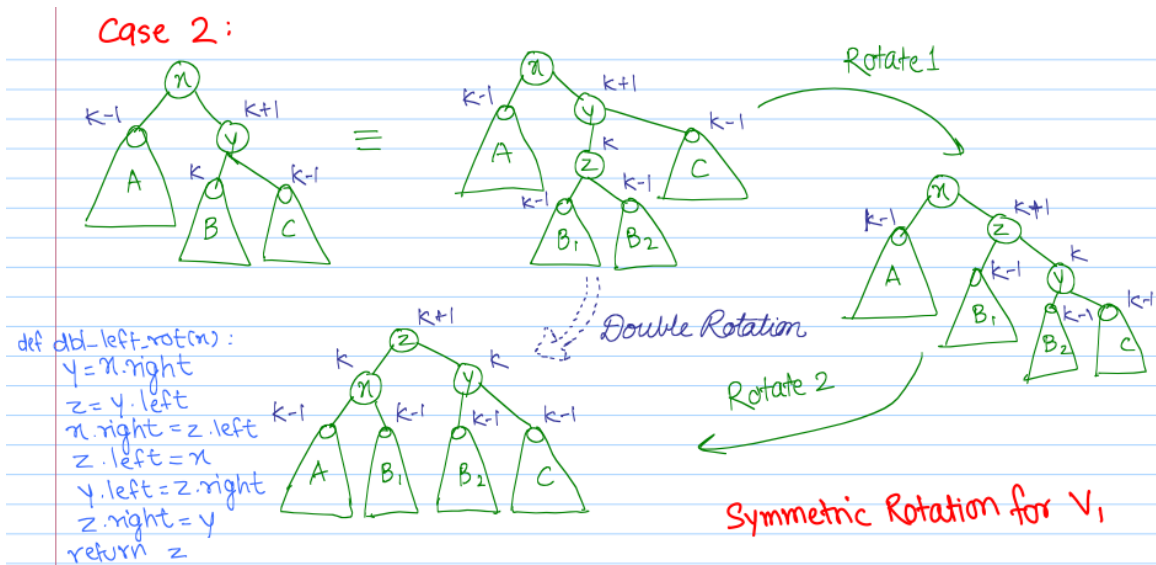 Case 2:
x
K-1
K+1
y
A
K
K-1
B
C
≡
x
K-1
K+1
y
K
K-1
A
z
C
K-1
K-1
B₁
B₂
Rotate 1
x
K-1
K+1
z
K
A
K-1
y
B₁
K-1
K-1
B₂
C
Double Rotation
Rotate 2
K+1
z
K
K
x
y
K-1
K-1
K-1
K-1
A
B₁
B₂
C
def dbl_left_rot(x):
y=x.right
z=y.left
x.right=z.left
z.left=x
y.left=z.right
z.right=y
return z
Symmetric Rotation for V₁